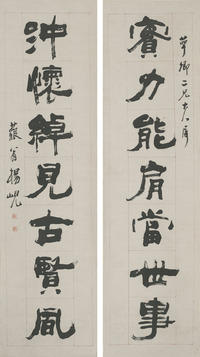 卿二兄大人屬
實力能肩當世事
沖懷綽見古賢風
藐翁楊峴